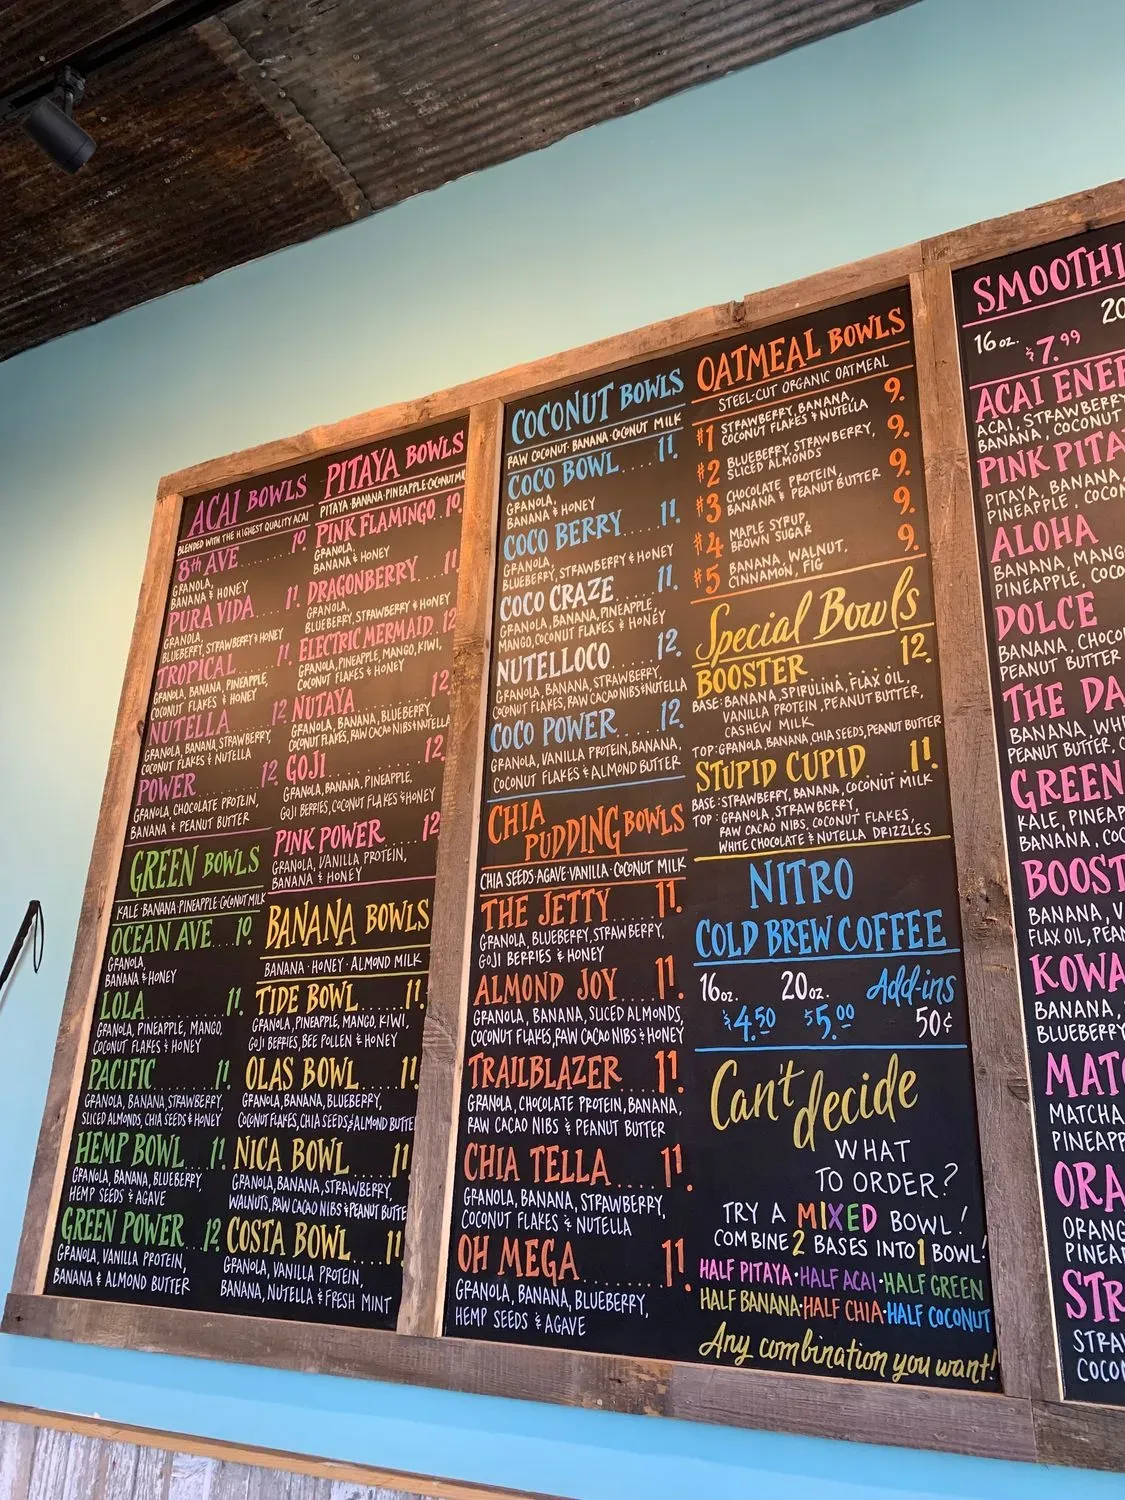 ACAI BOWLS
BLENDED WITH THE HIGHEST QUALITY ACAI
8th AVE........10
GRANOLA,
BANANA & HONEY
PURA VIDA....11.
GRANOLA,
BLUEBERRY, STRAWBERRY & HONEY
TROPICAL......11.
GRANOLA, BANANA, PINEAPPLE,
COCONUT FLAKES & HONEY
NUTELLA......12
GRANOLA, BANANA, STRAWBERRY,
COCONUT FLAKES & NUTELLA
POWER........12.
GRANOLA, CHOCOLATE PROTEIN,
BANANA & PEANUT BUTTER
GREEN BOWLS
KALE·BANANA·PINEAPPLE·COCONUT MILK
OCEAN AVE...10.
GRANOLA,
BANANA & HONEY
LOLA..........11.
GRANOLA, PINEAPPLE, MANGO,
COCONUT FLAKES & HONEY
PACIFIC........11.
GRANOLA, BANANA, STRAWBERRY,
SLICED ALMONDS, CHIA SEEDS & HONEY
HEMP BOWL...11.
GRANOLA, BANANA, BLUEBERRY,
HEMP SEEDS & AGAVE
GREEN POWER..12.
GRANOLA, VANILLA PROTEIN,
BANANA & ALMOND BUTTER
PITAYA BOWLS
PITAYA·BANANA·PINEAPPLE·COCONUT
PINK FLAMINGO..10.
GRANOLA,
BANANA & HONEY
DRAGONBERRY....11
GRANOLA,
BLUEBERRY, STRAWBERRY & HONEY
ELECTRIC MERMAID.12
GRANOLA, PINEAPPLE, MANGO, KIWI,
COCONUT FLAKES & HONEY
NUTAYA........12.
GRANOLA, BANANA, BLUEBERRY,
COCONUT FLAKES, RAW CACAO NIBS & NUTELLA
GOJI..........12.
GRANOLA, BANANA, PINEAPPLE,
GOJI BERRIES, COCONUT FLAKES & HONEY
PINK POWER.....12
GRANOLA, VANILLA PROTEIN,
BANANA & HONEY
BANANA BOWLS
BANANA·HONEY·ALMOND MILK
TIDE BOWL.....11.
GRANOLA, PINEAPPLE, MANGO, KIWI,
GOJI BERRIES, BEE POLLEN & HONEY
OLAS BOWL.....11.
GRANOLA, BANANA, BLUEBERRY,
COCONUT FLAKES, CHIA SEEDS & ALMOND BUTTE
NICA BOWL.....11
GRANOLA, BANANA, STRAWBERRY,
WALNUTS, RAW CACAO NIBS & PEANUT BUTTE
COSTA BOWL....11
GRANOLA, VANILLA PROTEIN,
BANANA, NUTELLA & FRESH MINT
COCONUT BOWLS
RAW COCONUT·BANANA·COCONUT MILK
COCO BOWL.....11.
GRANOLA,
BANANA & HONEY
COCO BERRY....11.
GRANOLA,
BLUEBERRY, STRAWBERRY & HONEY
COCO CRAZE.....11.
GRANOLA, BANANA, PINEAPPLE,
MANGO, COCONUT FLAKES & HONEY
NUTELLOCO......12.
GRANOLA, BANANA, STRAWBERRY,
COCONUT FLAKES, RAW CACAO NIBS & NUTELLA
COCO POWER.....12.
GRANOLA, VANILLA PROTEIN, BANANA,
COCONUT FLAKES & ALMOND BUTTER
CHIA
PUDDING BOWLS
CHIA SEEDS·AGAVE·VANILLA·COCONUT MILK
THE JETTY......11.
GRANOLA, BLUEBERRY, STRAWBERRY,
GOJI BERRIES & HONEY
ALMOND JOY....11.
GRANOLA, BANANA, SLICED ALMONDS,
COCONUT FLAKES, RAW CACAO NIBS & HONEY
TRAILBLAZER....11.
GRANOLA, CHOCOLATE PROTEIN, BANANA,
RAW CACAO NIBS & PEANUT BUTTER
CHIA TELLA......11.
GRANOLA, BANANA, STRAWBERRY,
COCONUT FLAKES & NUTELLA
OH MEGA........11.
GRANOLA, BANANA, BLUEBERRY,
HEMP SEEDS & AGAVE
OATMEAL BOWLS
STEEL-CUT ORGANIC OATMEAL
#1 STRAWBERRY, BANANA, 9.
COCONUT FLAKES & NUTELLA
#2 BLUEBERRY, STRAWBERRY, 9.
SLICED ALMONDS
#3 CHOCOLATE PROTEIN, 9.
BANANA & PEANUT BUTTER
#4 MAPLE SYRUP, 9.
BROWN SUGAR
#5 BANANA, WALNUT, 9.
CINNAMON, FIG
Special Bowls
BOOSTER........12.
BASE: BANANA, SPIRULINA, FLAX OIL,
VANILLA PROTEIN, PEANUT BUTTER,
CASHEW MILK
TOP: GRANOLA, BANANA, CHIA SEEDS, PEANUT BUTTER
STUPID CUPID....11.
BASE: STRAWBERRY, BANANA, COCONUT MILK
TOP: GRANOLA, STRAWBERRY,
RAW CACAO NIBS, COCONUT FLAKES,
WHITE CHOCOLATE & NUTELLA DRIZZLES
NITRO
COLD BREW COFFEE
16oz. 20oz. Add-ins
$4.50 $5.00 50¢
Can't decide
WHAT
TO ORDER?
TRY A MIXED BOWL!
COMBINE 2 BASES INTO 1 BOWL!
HALF PITAYA·HALF ACAI·HALF GREEN
HALF BANANA·HALF CHIA·HALF COCONUT
Any combination you want!
SMOOTHI
16oz. 20
$7.99
ACAI ENE
ACAI, STRAWBERRY
BANANA, COCONUT
PINK PITA
PITAYA, BANANA,
PINEAPPLE, COCON
ALOHA
BANANA, MANG
PINEAPPLE, COCO
DOLCE
BANANA, CHOCO
PEANUT BUTTER
THE DA
BANANA, WH
PEANUT BUTTER, C
GREEN
KALE, PINEAP
BANANA, CO
BOOST
BANANA, V
FLAX OIL, PEAN
KOWA
BANANA,
BLUEBERRY
MATC
MATCHA
PINEAPP
ORA
ORANG
PINEAP
STR
STRAW
COCO